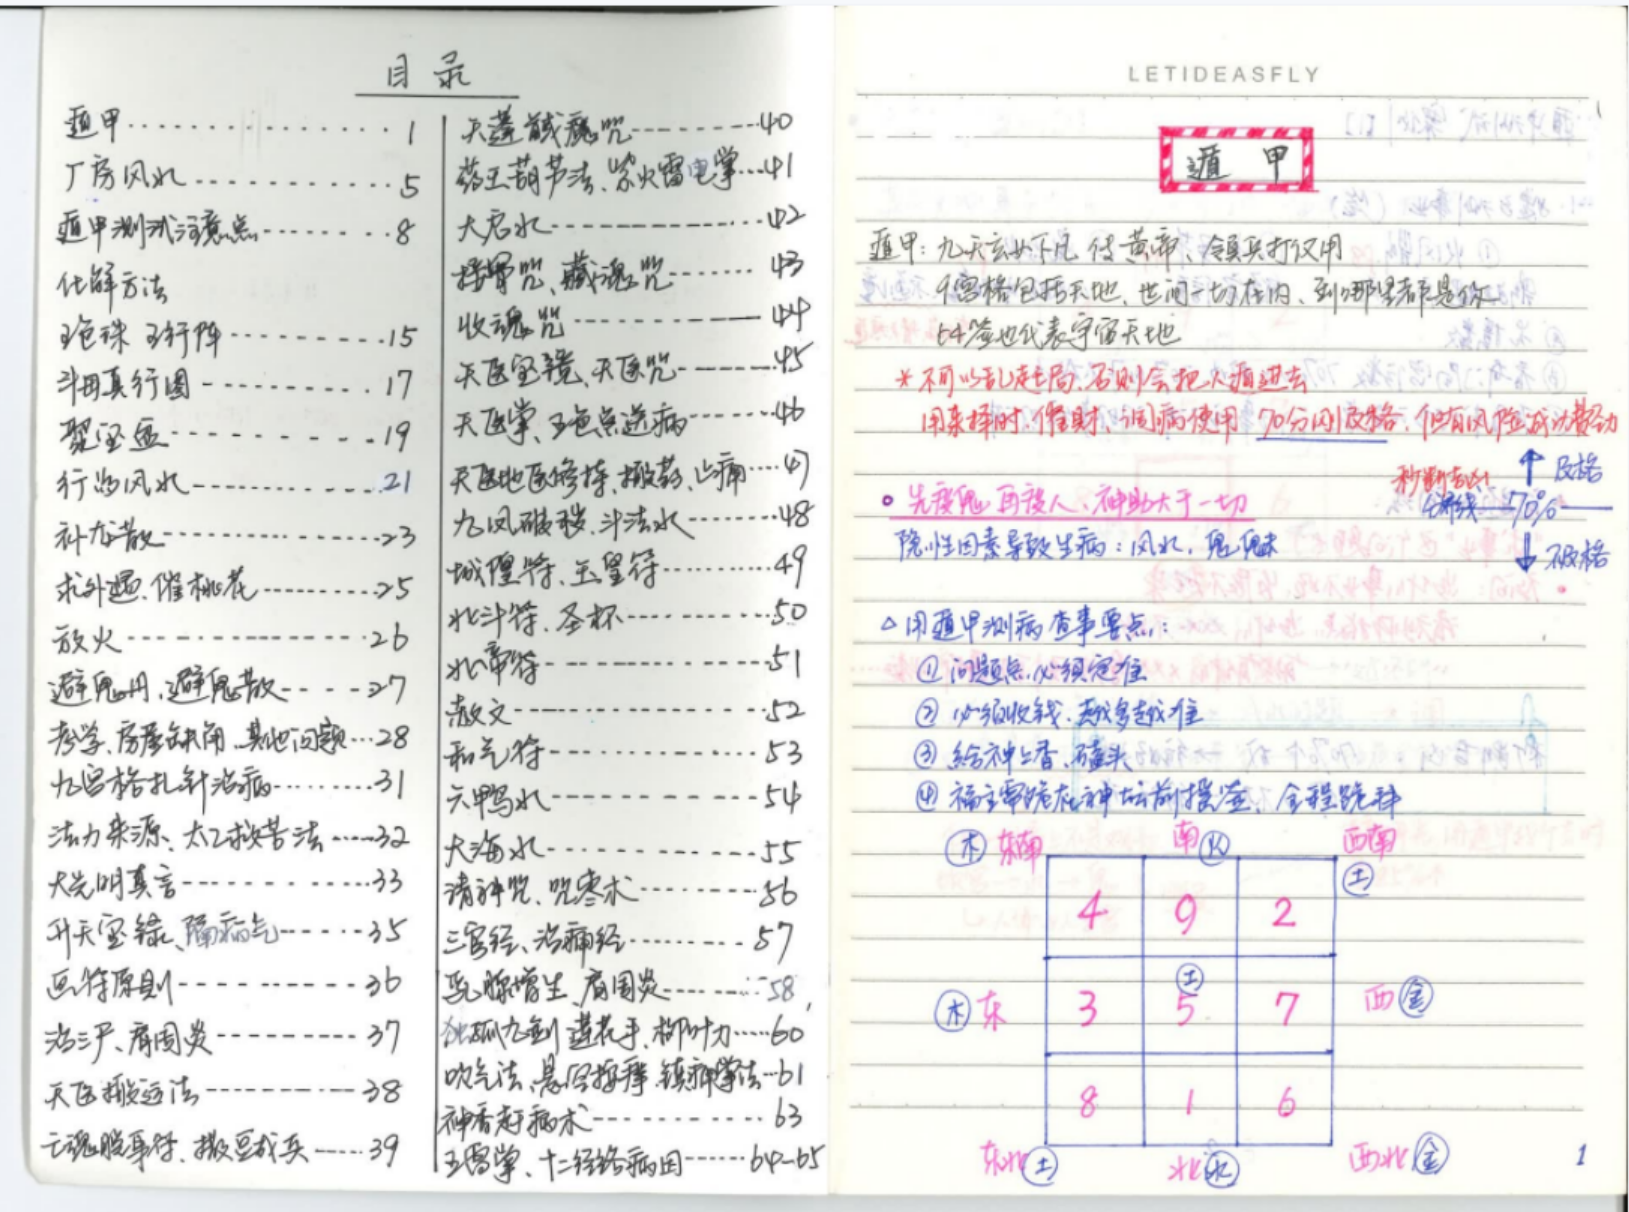 目录
遁甲 1
厂房风水 5
遁甲测试注意点 8
化解方法
五色珠 五行阵 15
斗母真行图 17
聚宝盆 19
行鸿风水 21
补龙散 23
求外遇、催桃花 25
放火 26
避鬼丹、避鬼散 27
考学、房屋缺角、其他问题 28
九宫格扎针治病 31
法力来源、太乙救苦法 32
大光明真言 33
升天宝箓、隔病气 35
画符原则 36
治三尸、肩周炎 37
天医搬运法 38
亡魂脱身符、撒豆成兵 39
天蓬馘魔咒 40
药王葫芦法、紫火雷电掌 41
大君水 42
接骨咒、藏魂咒 43
收魂咒 44
天医宝镜、天医咒 45
天医掌、五色点送病 46
天医地医修持、搬药、止痛 47
九凤破秽、斗法水 48
城隍符、玉皇符 49
北斗符、圣杯 50
北帝符 51
散文 52
和气符 53
六鸭水 54
大海水 55
请神咒、咒枣术 56
三官经、治痛经 57
乳腺增生、肩周炎 58
独孤九剑 莲花手、柳叶刀 60
吹气法、悬空按摩、镇神掌法 61
神香赶病术 63
五雷掌、十二经络病因 64-65
LETIDEASFLY
遁 甲
遁甲：九天玄女下凡 传黄帝、领兵打仗用
9宫格包括天地、世间一切在内、到哪里都是你
64签也代表宇宙天地
* 不可以乱起局、否则会把人遁进去
用来择时、催财、调病使用 70分以及格、但有风险
及格
秒断吉凶
70%
不及格
先度鬼 再度人、神助大于一切
隐性因素导致生病：风水，鬼魅
△ 用遁甲测病查事要点：
① 问题点必须定准
② 必须收钱、越多越准
③ 给神上香、磕头
④ 福主需跪在神坛前摇签、全程跪拜
木 东南 南 火 西南 土
4 9 2
木 东 3 土 5 7 西 金
8 1 6
东北 土 北 水 西北 金
1